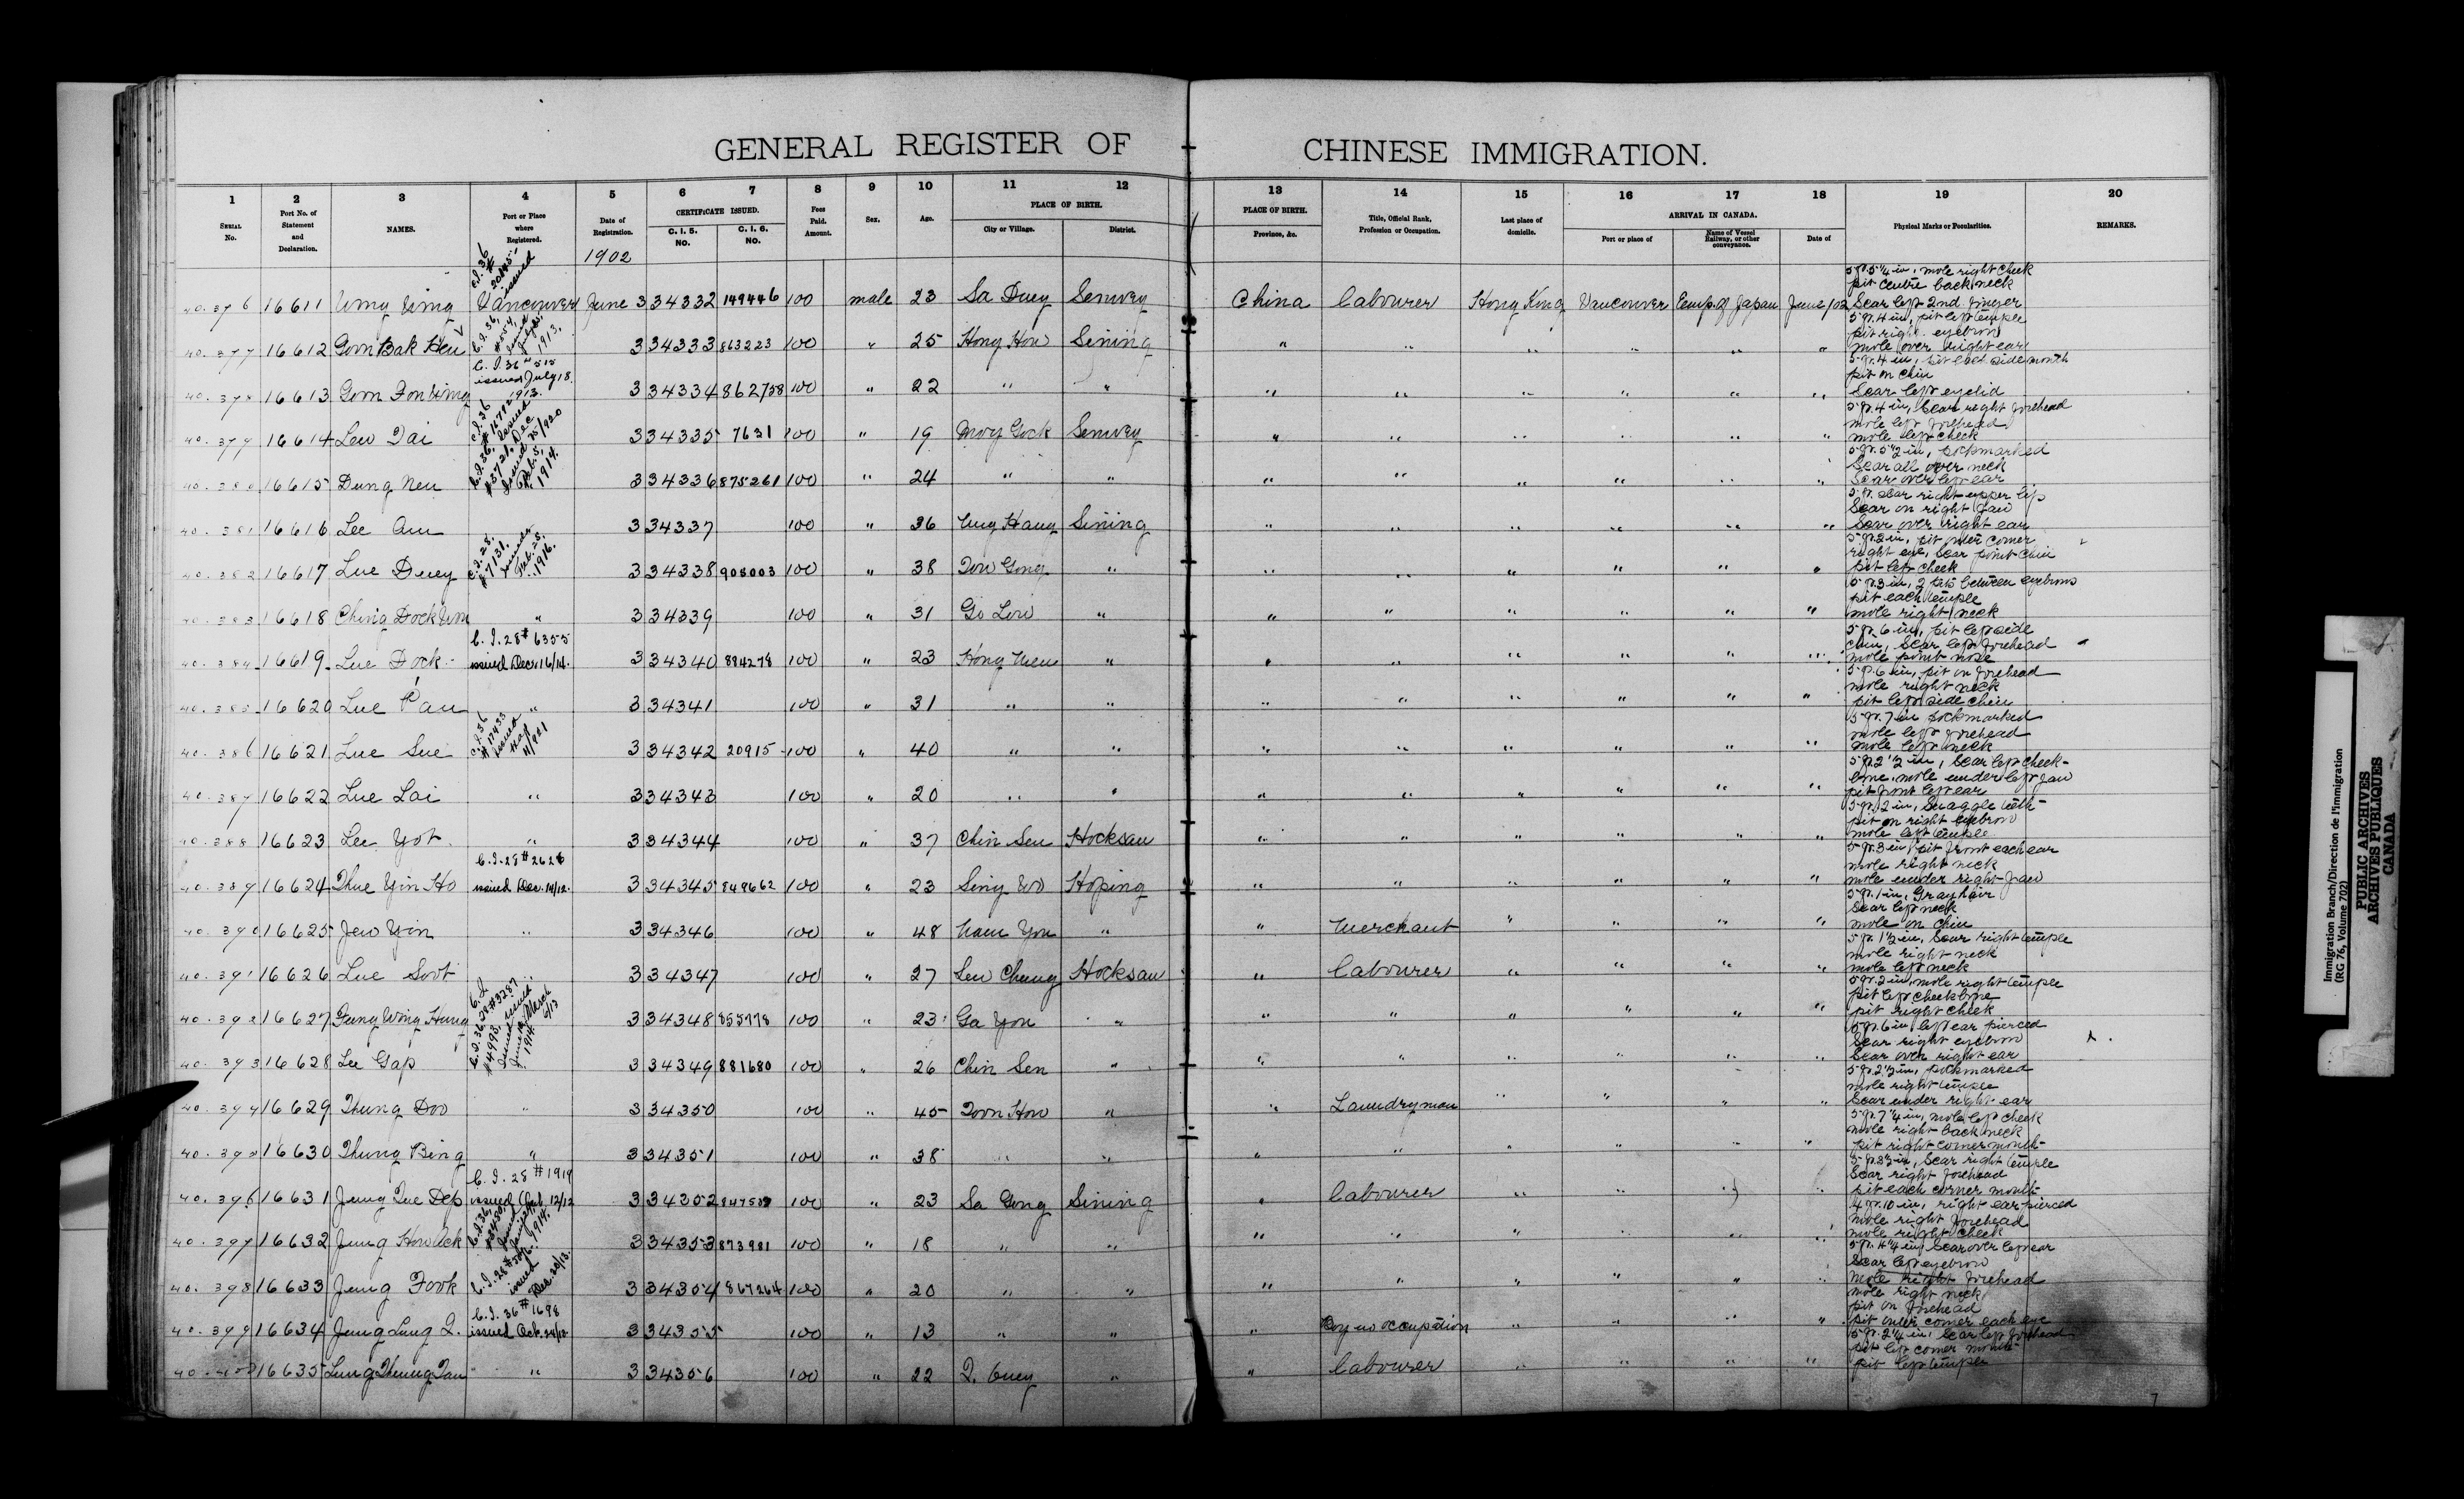 GENERAL REGISTER OF CHINESE IMMIGRATION.
1 2 3 4 5 6 7 8 9 10 11 12 13 14 15 16 17 18 19 20
SERIAL No. Port No. of Statement and Declaration. NAMES. Port or Place where Registered. Date of Registration. CERTIFICATE ISSUED. C. I. 5. NO. C. I. 6. NO. Fees Paid. Amount. Sex. Age. PLACE OF BIRTH. City or Village. District. PLACE OF BIRTH. Province, &c. Title, Official Rank, Profession or Occupation. Last place of domicile. ARRIVAL IN CANADA. Port or place of Name of Vessel Railway, or other conveyance. Date of Physical Marks or Peculiarities. REMARKS.
1902
40.376 16611 Wing Vancouver June 3 34332 149446 100 male 23 Sa Duey Senwey China Labourer Hong Kong Vancouver Emp. of Japan June/02 5 ft. 5¼ in, mole right cheek
pit centre back neck
Scar left 2nd. finger
40.377 16612 Goon Bak Heu 3 34333 863223 100 " 25 Hong How Sining " " " " " " 5 ft. 4 in, pit left temple
pit right eyebrow
mole over right ear
C. I. 36 # 515 issued July 18. 1913.
40.378 16613 Goon Fon 3 34334 862758 100 " 22 " " " " " " " " 5 ft. 4 in, pit each side mouth
pit on chin
Scar left eyelid
40.379 16614 Lew Dai 3 34335 7631 100 " 19 Moy Gock Senwey " " " " " " 5 ft. 4 in, Scar right forehead
mole left forehead
mole left cheek
40.380 16615 Dung Neu 3 34336 875261 100 " 24 " " " " " " " " 5 ft. 5½ in, pockmarked
Scar all over neck
Scar over left ear
40.381 16616 Lee Am 3 34337 100 " 36 Hang Sining " " " " " " 5 ft. scar right upper lip
Scar on right jaw
Scar over right ear
C.I. 28. # 7131. issued Feb. 28. 1916.
40.382 16617 Lue Duey 3 34338 908003 100 " 38 Tow Gong " " " " " " " 5 ft. 2 in, pit outer corner
right eye, Scar point chin
pit left cheek
40.383 16618 Ching Dock " 3 34339 100 " 31 Go Low " " " " " " " 5 ft. 3 in, 2 pits between eyebrows
pit each temple
mole right neck
C. I. 28 # 6355 issued Dec. 16/14.
40.384 16619 Lue Dock 3 34340 884278 100 " 23 Hong " " " " " " " 5 ft. 6 in, pit left side
chin, Scar left forehead
mole point nose
40.385 16620 Lue Pau " 3 34341 100 " 31 " " " " " " " " 5 ft. 6 in, pit on forehead
mole right neck
pit left side chin
40.386 16621 Lue Sue 3 34342 20915 100 " 40 " " " " " " " " 5 ft. 7 in pockmarked
mole left forehead
mole left neck
40.387 16622 Lue Lai " 3 34343 100 " 20 " " " " " " " " 5 ft. 2½ in, Scar left cheek-
bone, mole under left jaw
pit front left ear
40.388 16623 Lee Yot " 3 34344 100 " 37 Chin Sen Hocksan " " " " " " 5 ft. 2 in, Snaggle tooth
pit on right eyebrow
mole left temple
C.I. 28 # 2626 issued Dec. 14/12.
40.389 16624 Thue Yin Ho 3 34345 849662 100 " 23 Sing Wo Hoping " " " " " " 5 ft. 3 in, pit front each ear
mole right neck
mole under right jaw
40.390 16625 Jew Yin " 3 34346 100 " 48 Nam Yon " " Merchant " " " " 5 ft. 1 in, Gray hair
Scar left neck
mole on chin
40.391 16626 Lue Soot 3 34347 100 " 27 Sen Chung Hocksan " Labourer " " " " 5 ft. 1½ in, Scar right temple
mole right neck
mole left neck
40.392 16627 Fung Wing Hung 3 34348 855778 100 " 23 Ga Yon " " " " " " " 5 ft. 2 in, mole right temple
pit left cheekbone
pit right cheek
40.393 16628 Lee Gap 3 34349 881680 100 " 26 Chin Sen " " " " " " " 5 ft. 6 in, left ear pierced
Scar right eyebrow
Scar over right ear
40.394 16629 Thung Doo " 3 34350 100 " 45 Toon How " " Laundryman " " " " 5 ft. 2½ in, pockmarked
mole right temple
Scar under right ear
40.395 16630 Thung Bing " 3 34351 100 " 38 " " " " " " " " 5 ft. 7¼ in, mole left cheek
mole right back neck
pit right corner mouth
C. I. 28 # 1919 issued Oct. 12/12
40.396 16631 Jung Que Dep 3 34352 100 " 23 Sa Gong Sining " Labourer " " " " Scar right temple
Scar right forehead
pit each corner mouth
40.397 16632 Jung How Ack 3 34353 873981 100 " 18 " " " " " " " " 4 ft. 10 in, right ear pierced
mole right forehead
mole right cheek
40.398 16633 Jung Fook 3 34354 867264 100 " 20 " " " " " " " " 5 ft. 4¼ in, Scar over left ear
Scar left eyebrow
mole right forehead
C. I. 36 # 1698 issued Oct.
40.399 16634 Jung Lung Q. 3 34355 100 " 13 " " " Boy no occupation " " " " mole right neck
pit on forehead
pit outer corner each eye
40.400 16635 Lung Thung Tan " 3 34356 100 " 22 Q. Guey " " Labourer " " " " 5 ft. 2¼ in, Scar left forehead
pit left corner mouth
pit left temple
7
Immigration Branch/Direction de l'immigration
(RG 76, Volume 702)
PUBLIC ARCHIVES
ARCHIVES PUBLIQUES
CANADA